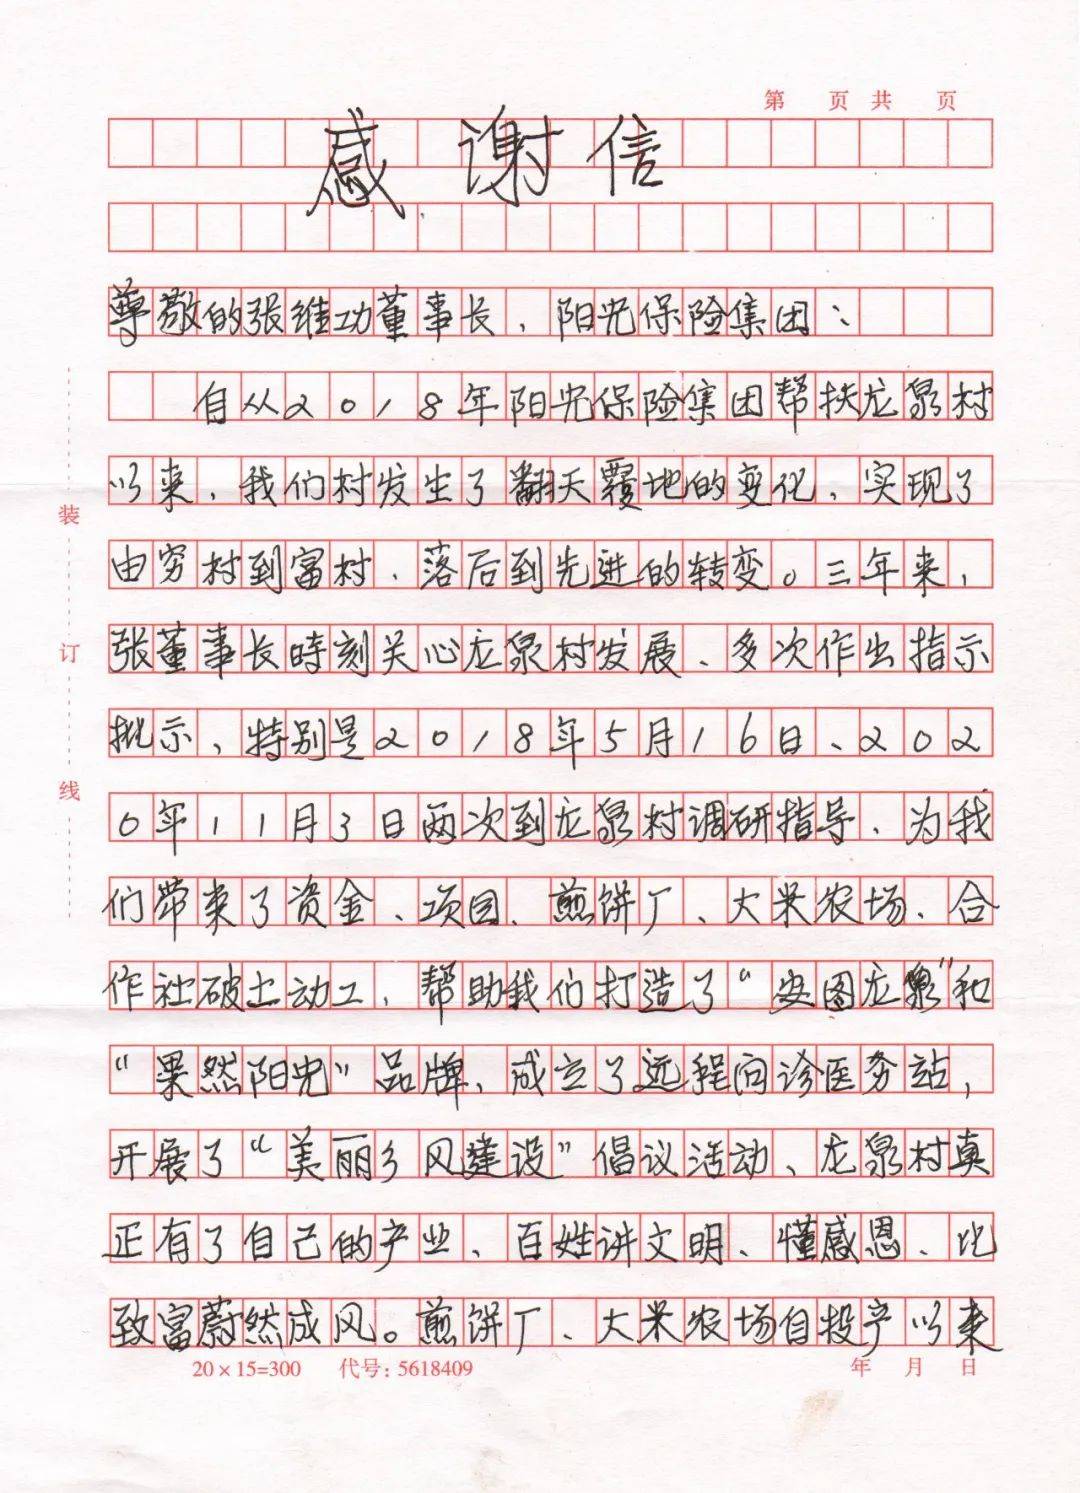 第　页共　页
感谢信
尊敬的张维功董事长、阳光保险集团：
自从2018年阳光保险集团帮扶龙泉村
以来，我们村发生了翻天覆地的变化，实现了
由穷村到富村、落后到先进的转变。三年来，
张董事长時刻关心龙泉村发展、多次作出指示
批示、特别是2018年5月16日、202
0年11月3日两次到龙泉村调研指导、为我
们带来了资金、项目、煎饼厂、大米农场、合
作社破土动工、帮助我们打造了“安图龙泉”和
“果然阳光”品牌，成立了远程问诊医务站，
开展了“美丽乡风建设”倡议活动、龙泉村真
正有了自己的产业、百姓讲文明、懂感恩、比
致富蔚然成风。煎饼厂、大米农场自投产以来
20×15=300　代号：5618409　年　月　日
装
订
线